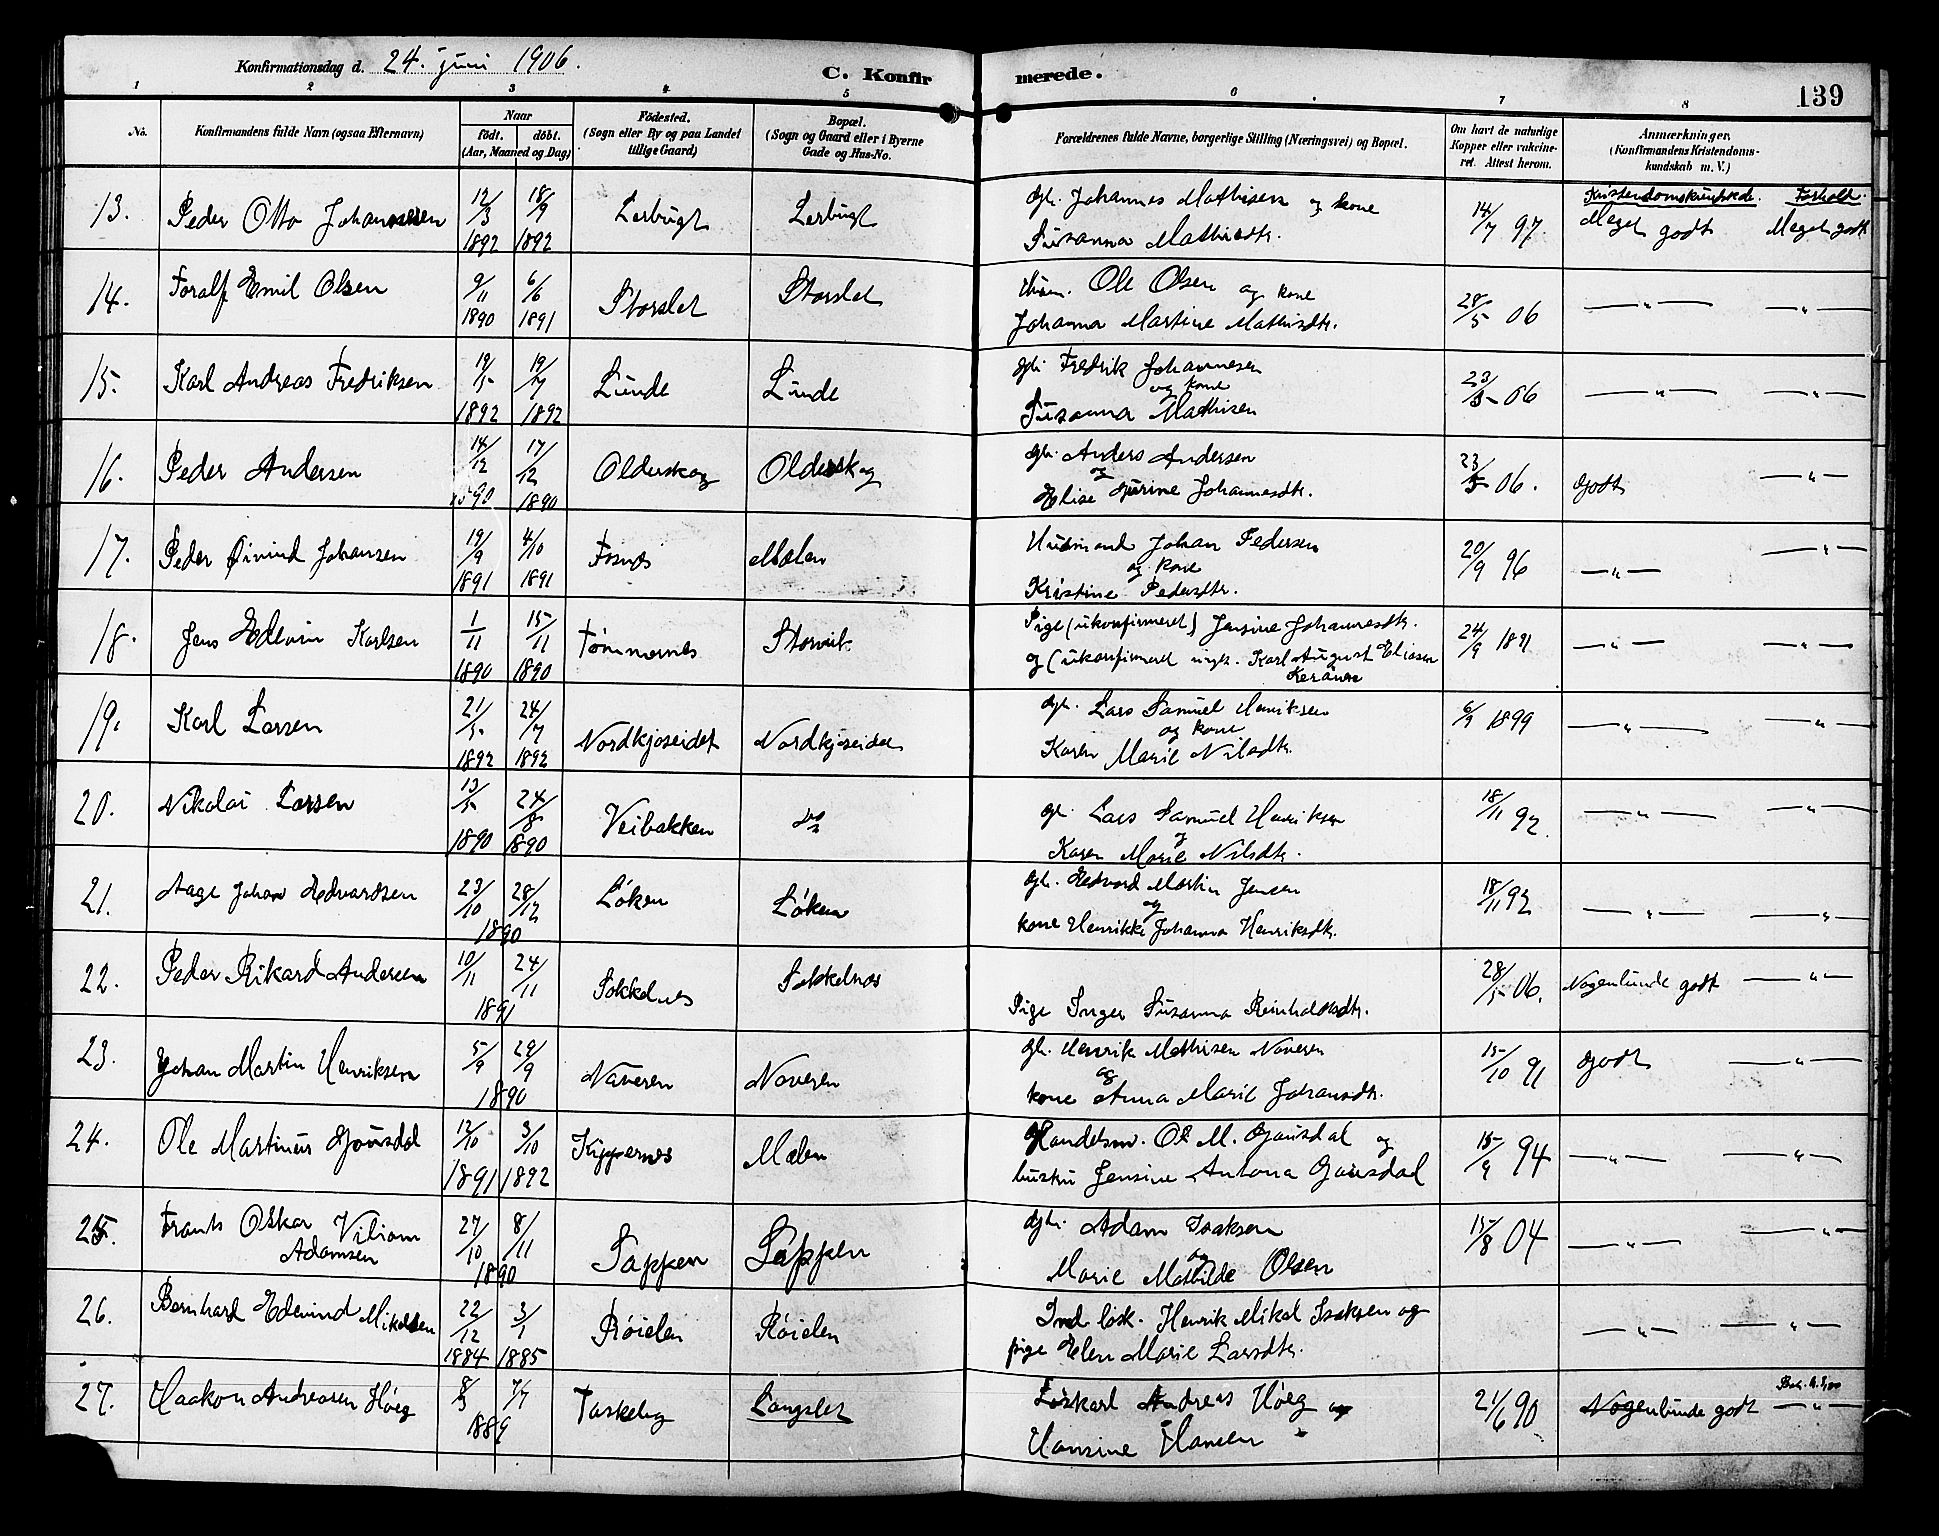 Konfirmationsdag d. 24. juni 1906.
C. Konfirmerede.
139
1 2 3 4 5 6 7 8
No.
Konfirmandens fulde Navn (ogsaa Efternavn)
Naar
født. døbt.
(Aar, Maaned og Dag)
Fødested.
(Sogn eller By og paa Landet tillige Gaard)
Bopæl.
(Sogn og Gaard eller i Byerne Gade og Hus-No.
Forældrenes fulde Navne, borgerlige Stilling (Næringsvei) og Bopæl.
Om havt de naturlige Kopper eller vakcineret. Attest herom.
Anmærkninger.
(Konfirmandens Kristendomskundskab m. V.)
Kristendomskundskab. Forhold.
13. Peder Otto Johannessen 12/3 1892 18/9 1892 Lerbugt Lerbugt
gbr. Johannes Mathisen og kone
Susanna Mathisdtr. 14/7 97. Meget godt Meget godt
14. Toralf Emil Olsen 9/11 1890 6/6 1891 Storslet Storslet
Husm. Ole Olsen og kone
Johanna Martine Mathisdtr. 28/5 06 —„— —„—
15. Karl Andreas Fredriksen 19/5 1892 19/7 1892 Lunde Lunde
gbr. Fredrik Johannesen
og kone
Susanna Mathisen 23/5 06 —„— —„—
16. Peder Andersen 14/12 90 17/12 1890 Olderskog Olderskog
gbr. Anders Andersen
og
Elise Gurine Johannesdtr. 23/5 06. Godt —„—
17. Peder Øivind Johansen 19/9 1891 4/10 1891 Fosnes Mælen
Husmand Johan Pedersen
og kone
Kristine Pedersdtr. 20/9 96 —„— —„—
18. Jens Edevin Karlsen 1/11 1890 15/11 1890 Tømmernes Storvik
Pige (ukonfirmeret) Jensine Johannesdtr.
og (ukonfirmeret ungk. Karl August Eliasen
24/9 1891 —„— —„—
19. Karl Larsen 21/5 1892 24/7 1892 Nordkjoseidet Nordkjoseidet
gbr. Lars Samuel Henriksen
og kone
Karen Marie Nilsdtr. 6/7 1899 —„— —„—
20. Nikolai Larsen 13/5 1890 24/8 1890 Veibakken do
gbr. Lars Samuel Henriksen
og
Karen Marie Nilsdtr. 18/11 92. —„— —„—
21. Aage Johan Edvardsen 23/10 28/12 1890 Løken Løken
gbr. Edvard Martin Jensen
og
kone Henrikke Johanna Henriksdtr. 18/11 92 —„— —„—
22. Peder Rikard Andersen 10/11 24/11 1891 Sokkelnes Sokkelnes
Pige Inger Susanna Reinholdtsdtr. 28/5 06. Nogenlunde godt —„—
23. Johan Martin Henriksen 5/9 29/9 1890 Naveren Naveren
gbr. Henrik Mathisen Naveren
og
kone Anna Marie Johansdtr. 15/10 91 Godt —„—
24. Ole Martinus Gausdal 12/10 1891 3/10 1892 Kippernes Mælen
Handelsm. Ole M. Gausdal og
hustru Jensine Antona Gausdal 15/9 94 —„— —„—
25. Frants Oskar Viliam
Adamsen 27/10 8/11 1890 Sappen Sappen
gbr. Adam Isaksen
og
Marie Mathilde Olsen 15/8 04 —„— —„—
26. Bernhard Edevind Mikalsen 22/12 1884 3/1 1885 Røielen Røielen
Ind. løsk. Henrik Mikal Isaksen og
pige Elen Marie Larsdtr. —„— —„—
27. Haakon Andreasen Høeg 8/3 7/7 1889 Taskeby Langslet
Løskarl Andreas Høeg og
Hansine Hansen 21/6 90 Nogenlunde godt —„—